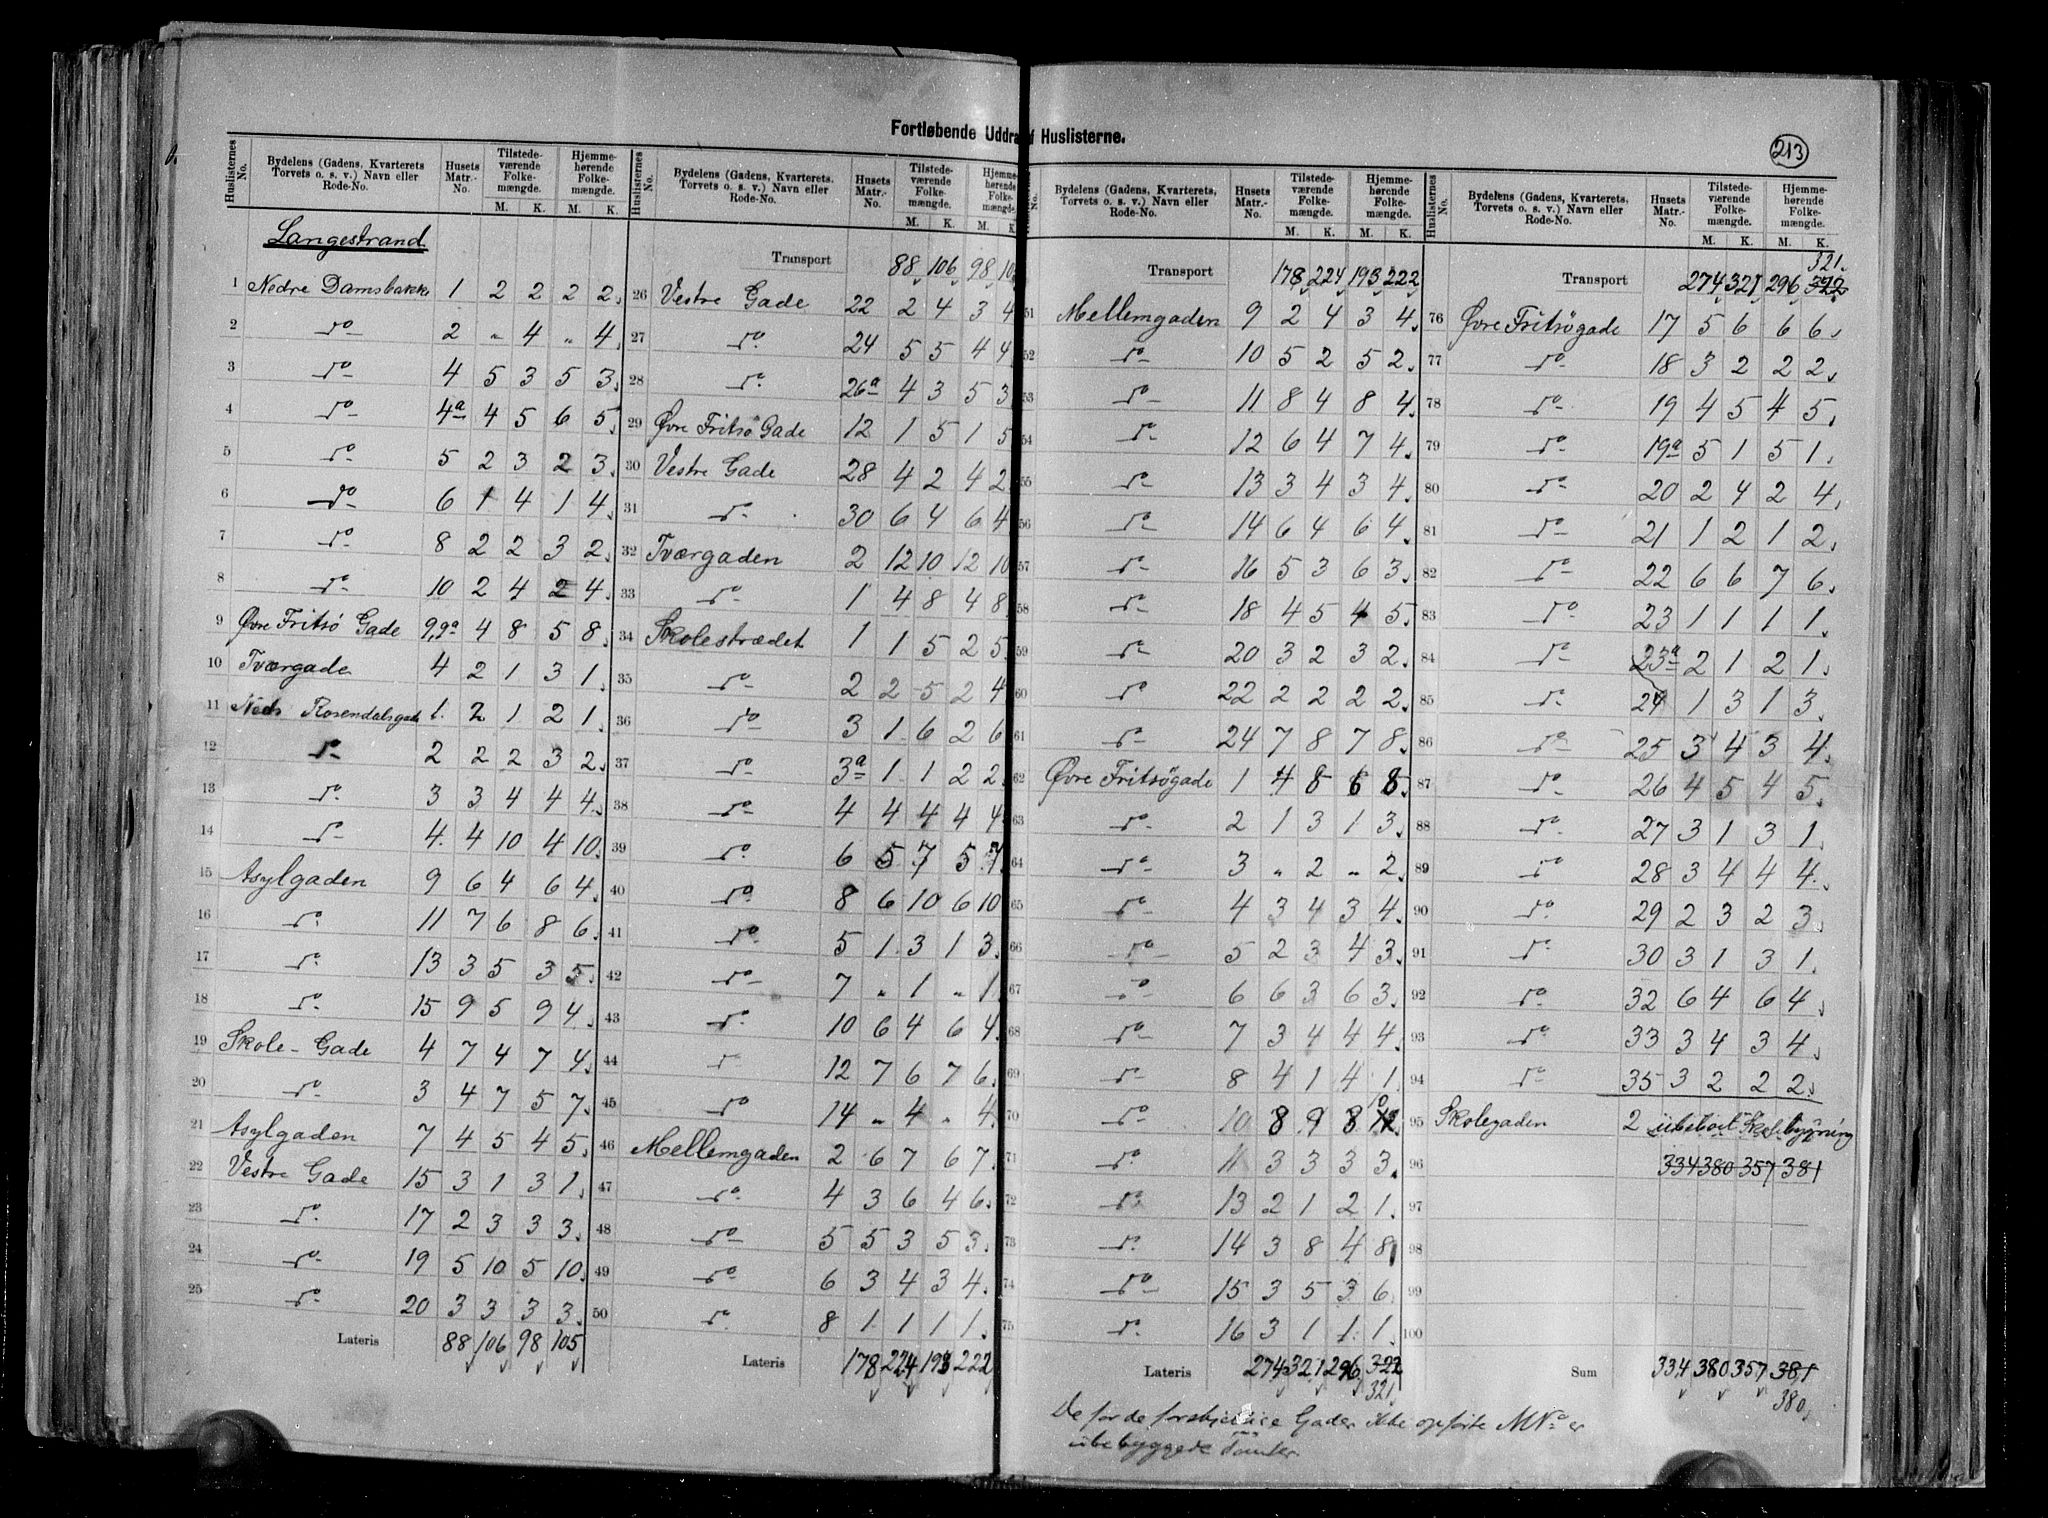 Fortløbende Uddra f Huslisterne.
213
Huslisternes No. | Bydelens (Gadens, Kvarterets Torvets o. s. v.) Navn eller Rode-No. | Husets Matr.-No. | Tilstedeværende Folkemængde. M. K. | Hjemmehørende Folkemængde. M. K.
Langestrand
1 Nedre Damsbakke 1 2 2 2 2
2 do 2 „ 4 „ 4
3 do 4 5 3 5 3
4 do 4a 4 5 6 5
5 do 5 2 3 2 3
6 do 6 1 4 1 4
7 do 8 2 2 3 2
8 do 10 2 4 2 4
9 Øvre Fritsø Gade 9,9a 4 8 5 8
10 Tværgade 4 2 1 3 1
11 Nedr Rosendalsgade 1. 2 1 2 1
12 do 2 2 2 3 2
13 do 3 3 4 4 4
14 do 4. 4 10 4 10
15 Asylgaden 9 6 4 6 4
16 do 11 7 6 8 6
17 do 13 3 5 3 5
18 do 15 9 5 9 4
19 Skole-Gade 4 7 4 7 4
20 do 3 4 7 5 7
21 Asylgaden 7 4 5 4 5
22 Vestre Gade 15 3 1 3 1
23 do 17 2 3 3 3
24 do 19 5 10 5 10
25 do 20 3 3 3 3
Lateris 88 106 98 105
Huslisternes No. | Bydelens (Gadens, Kvarterets, Torvets o. s. v.) Navn eller Rode-No. | Husets Matr.-No. | Tilstedeværende Folkemængde. M. K. | Hjemmehørende Folkemængde. M. K.
Transport 88 106 98 10
26 Vestre Gade 22 2 4 3 4
27 do 24 5 5 4 4
28 do 26a 4 3 5 3
29 Øvre Fritsø Gade 12 1 5 1 5
30 Vestre Gade 28 4 2 4 2
31 do 30 6 4 6 4
32 Tværgaden 2 12 10 12 10
33 do 1 4 8 4 8
34 Skolestrædet 1 1 5 2 5
35 do 2 2 5 2 4
36 do 3 1 6 2 6
37 do 3a 1 1 2 2
38 do 4 4 4 4 4
39 do 6 5 7 5 7
40 do 8 6 10 6 10
41 do 5 1 3 1 3
42 do 7 „ 1 „ 1
43 do 10 6 4 6 4
44 do 12 7 6 7 6
45 do 14 „ 4 „ 4
46 Mellemgaden 2 6 7 6 7
47 do 4 3 6 4 6
48 do 5 5 3 5 3
49 do 6 3 4 3 4
50 do 8 1 1 1 1
Lateris 178 224 193 222
No. | Bydelens (Gadens, Kvarterets, Torvets o. s. v.) Navn eller Rode-No. | Husets Matr.-No. | Tilstedeværende Folkemængde. M. K. | Hjemmehørende Folkemængde. M. K.
Transport 178 224 193 222
51 Mellemgaden 9 2 4 3 4
52 do 10 5 2 5 2
53 do 11 8 4 8 4
54 do 12 6 4 7 4
55 do 13 3 4 3 4
56 do 14 6 4 6 4
57 do 16 5 3 6 3
58 do 18 4 5 4 5
59 do 20 3 2 3 2
60 do 22 2 2 2 2
61 do 24 7 8 7 8
62 Øvre Fritsøgade 1 4 8 6 8
63 do 2 1 3 1 3
64 do 3 „ 2 „ 2
65 do 4 3 4 3 4
66 do 5 2 3 4 3
67 do 6 6 3 6 3
68 do 7 3 4 4 4
69 do 8 4 1 4 1
70 do 10 8 9 8 10
71 do 11 3 3 3 3
72 do 13 2 1 2 1
73 do 14 3 8 4 8
74 do 15 3 5 3 6
75 do 16 3 1 1 1
Lateris 274 321 296 322
321
Huslisternes No. | Bydelens (Gadens, Kvarterets, Torvets o. s. v.) Navn eller Rode-No. | Husets Matr.-No. | Tilstedeværende Folkemængde. M. K. | Hjemmehørende Folkemængde. M. K.
321.
Transport 274 321 296 322
76 Øvre Fritsøgade 17 5 6 6 6
77 do 18 3 2 2 2
78 do 19 4 5 4 5
79 do 19a 5 1 5 1
80 do 20 2 4 2 4
81 do 21 1 2 1 2
82 do 22 6 6 7 6
83 do 23 1 1 1 1
84 do 23a 2 1 2 1
85 do 24 1 3 1 3
86 do 25 3 4 3 4
87 do 26 4 5 4 5
88 do 27 3 1 3 1
89 do 28 3 4 4 4
90 do 29 2 3 2 3
91 do 30 3 1 3 1
92 do 32 6 4 6 4
93 do 33 3 4 3 4
94 do 35 3 2 2 2
95 Skolegaden 2 ubeboet Skolebygning
96 334 380 357 381
97
98
99
100
Sum 334 380 357 381
380
De for de forskjellige Gader ikke opførte MNo er
ubebyggede Tomter